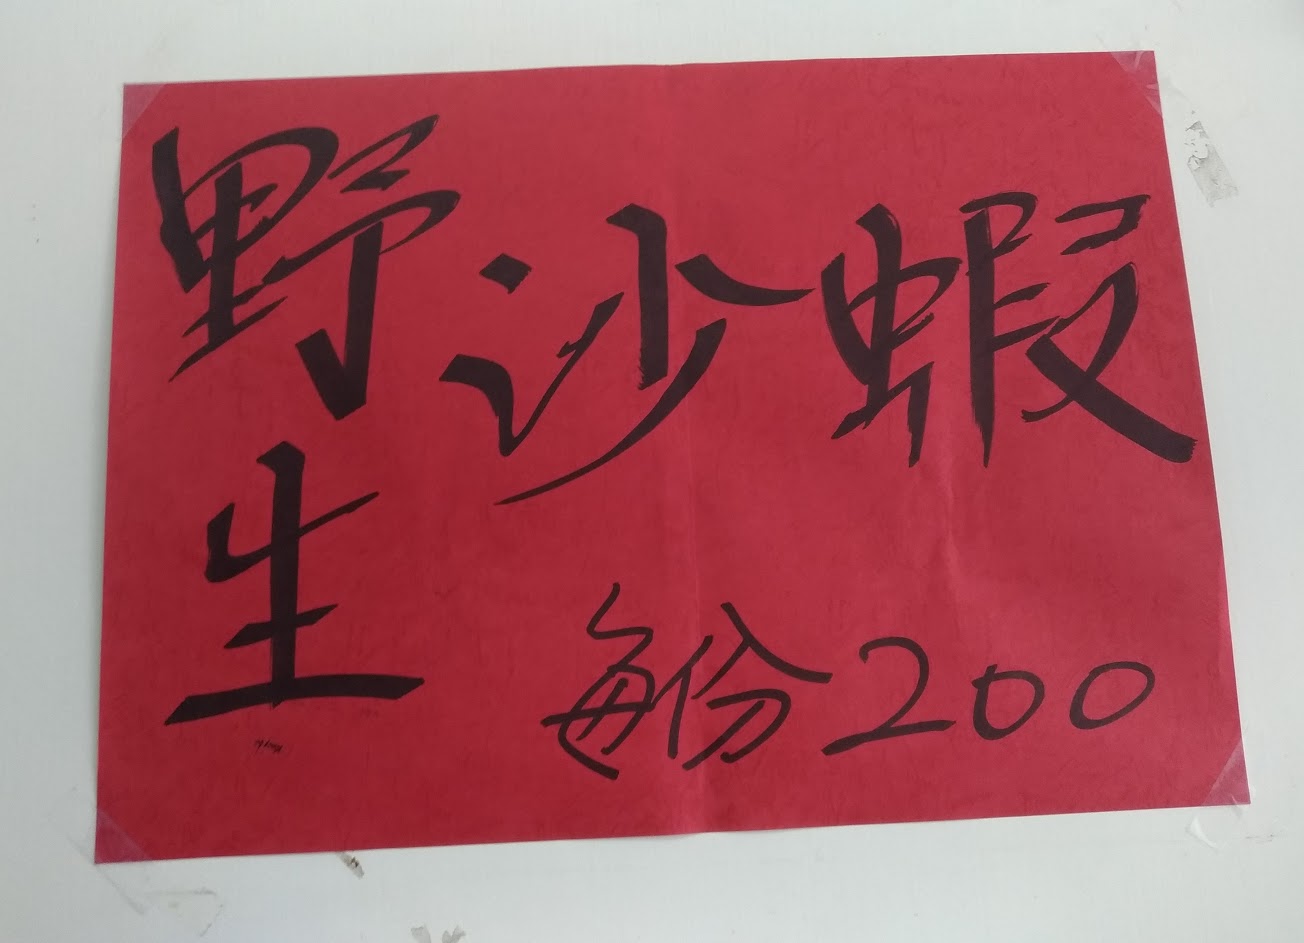 野生沙蝦
每份200